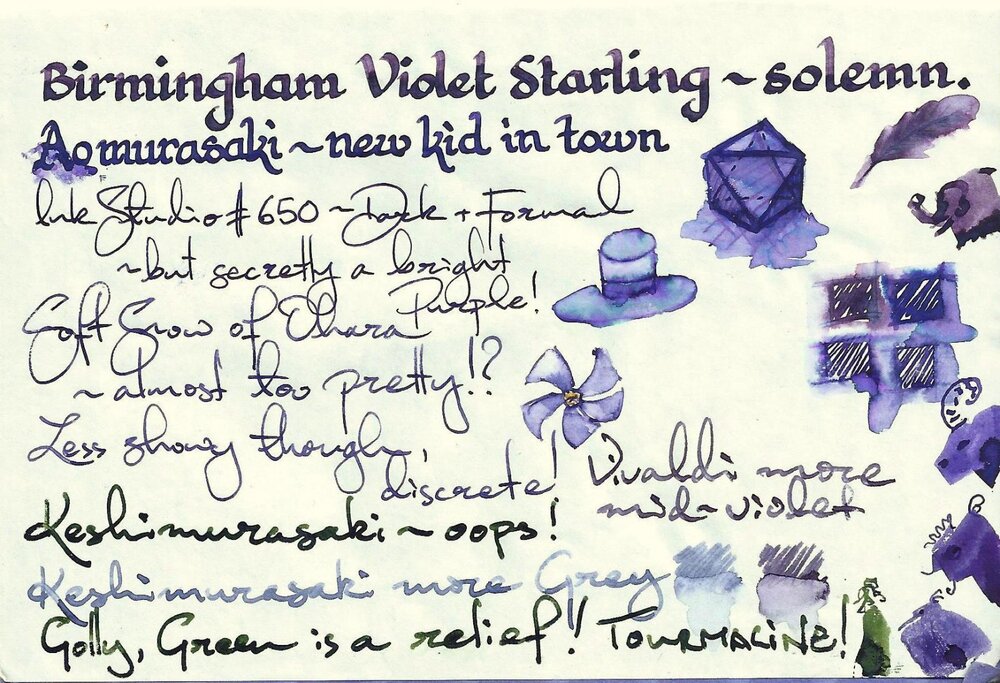 Birmingham Violet Starling ~ solemn.
Aomurasaki ~ new kid in town
Ink Studio # 650 ~ Dark + Formal
~ but secretly a bright
Purple!
Soft Snow of Ohara
~ almost too pretty!?
Less showy though,
discrete!
Vivaldi more
mid-violet
Keshimurasaki ~ oops!
Keshimurasaki more Grey
Golly, Green is a relief! TOURMALINE!